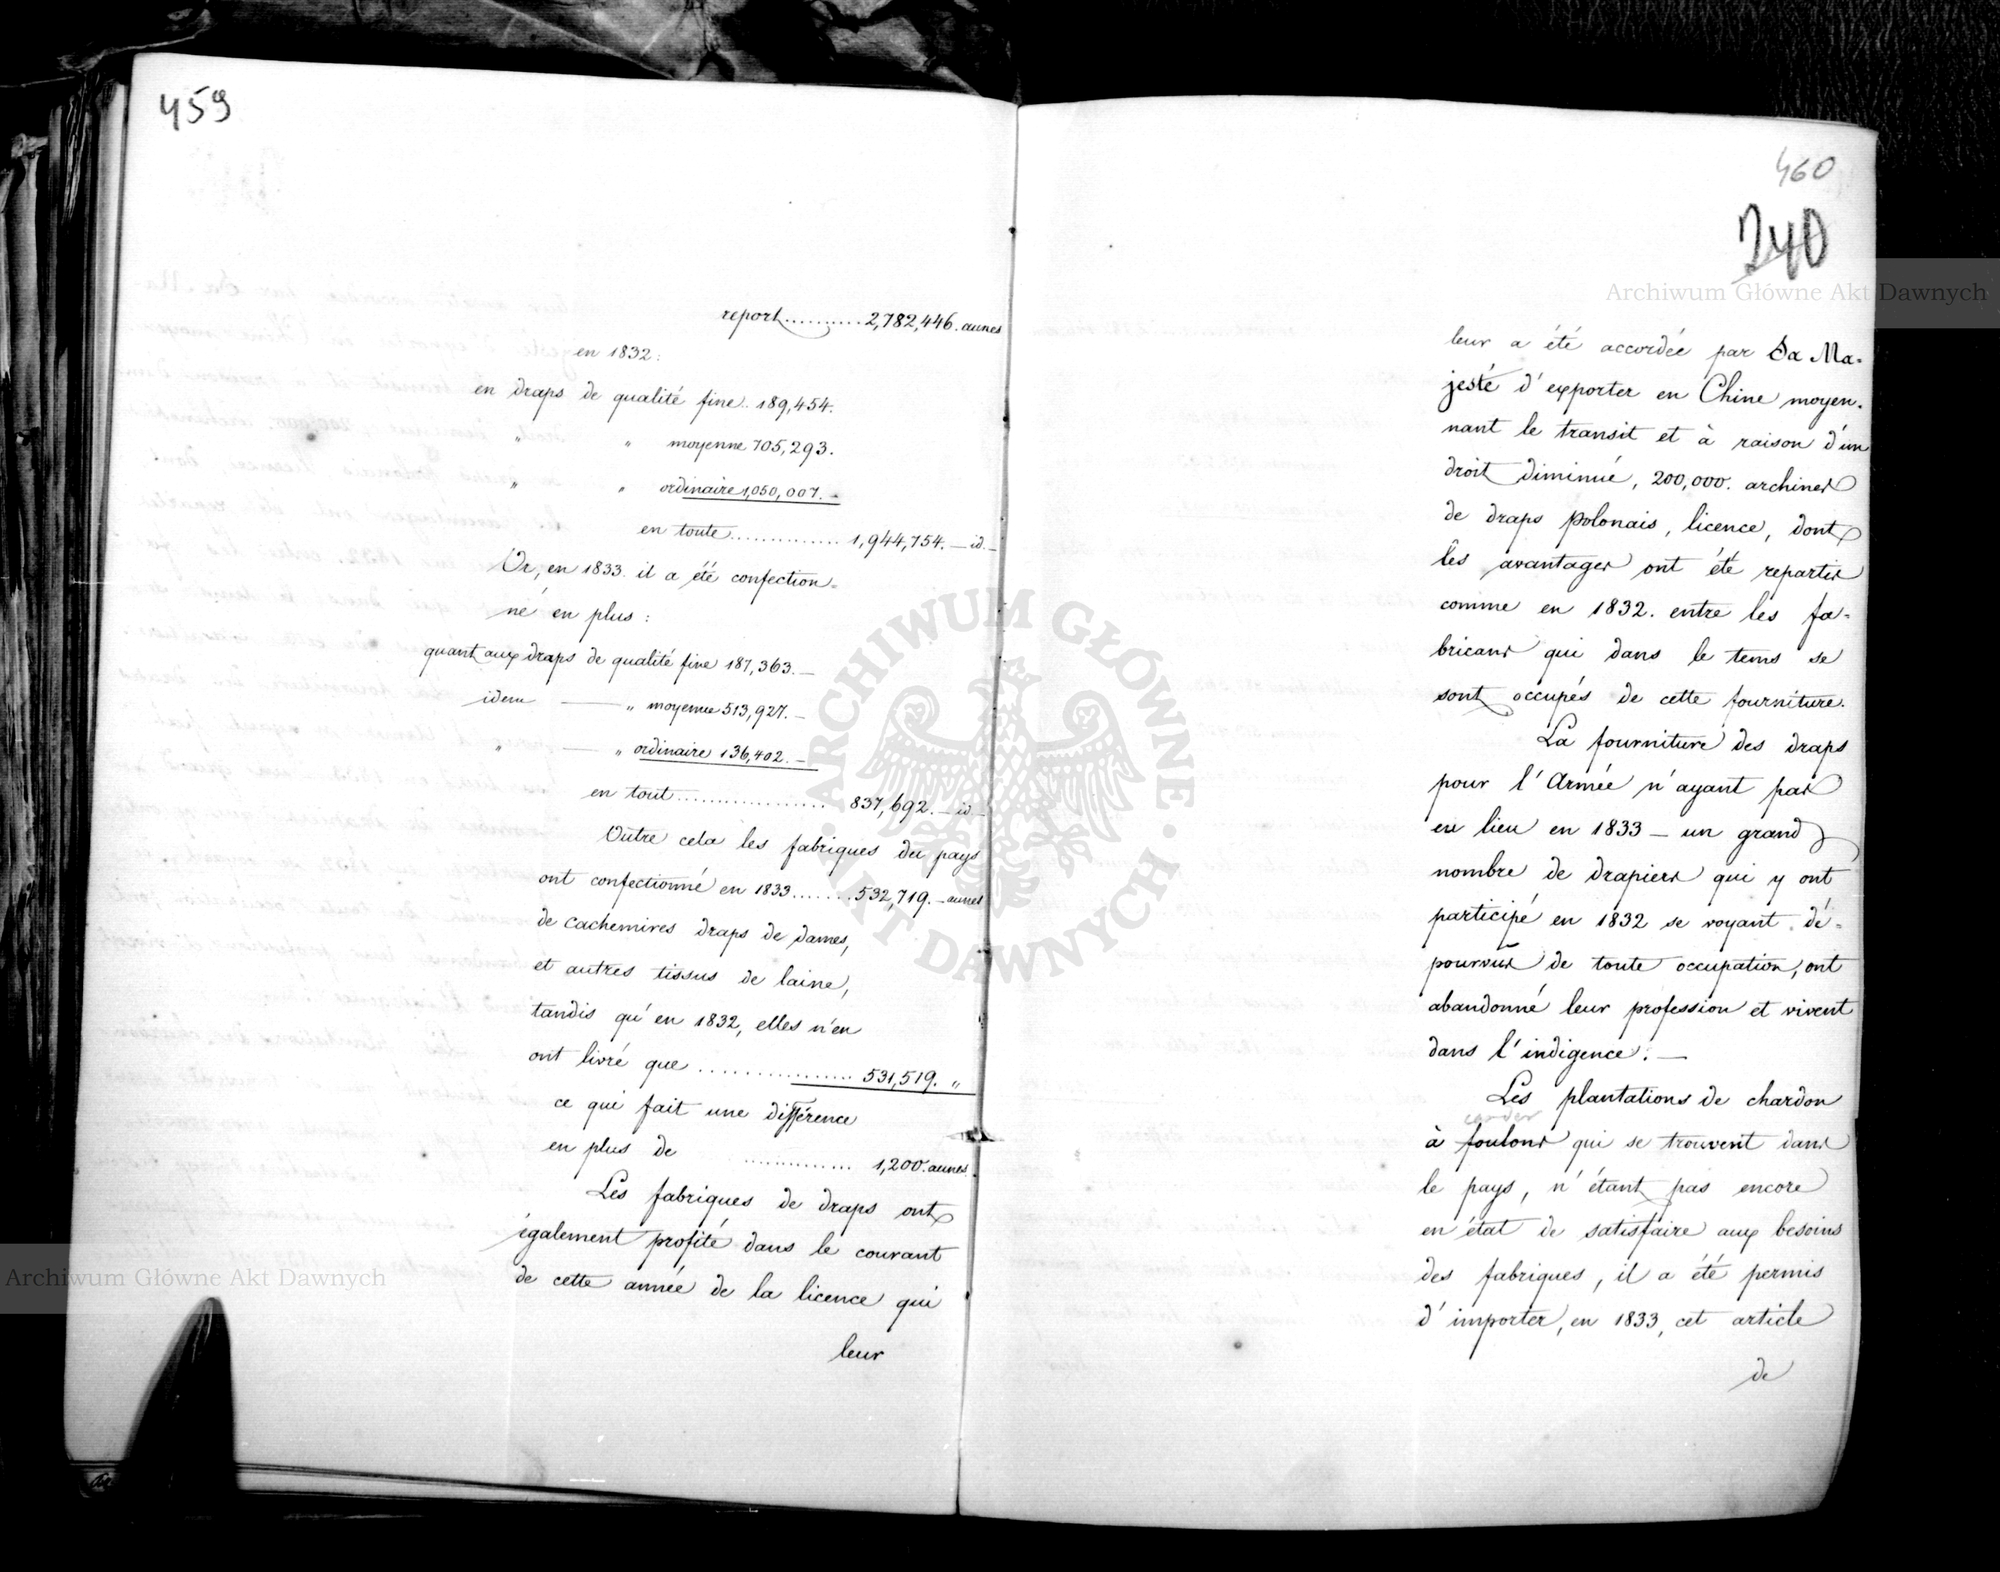 459
report.......... 2,782,446. aunes
en 1832:
en draps de qualité fine.. 189,454.
" " moyenne 705,293.
" " ordinaire 1,050,007. -
en toute.............. 1,944,754. — id. -
Or, en 1833. il a été confection=
né en plus:
quant aux draps de qualité fine 187,363. —
idem — " moyenne 513,927. —
" — " ordinaire 136,402. —
en tout................... 837,692. — id. —
Outre cela les fabriques du pays
ont confectionné en 1833....... 532,719. - aunes
de cachemires draps de dames,
et autres tissus de laine,
tandis qu'en 1832, elles n'en
ont livré que ................. 531,519. "
ce qui fait une différence
en plus de .............. 1,200. aunes.
Les fabriques de draps ont
également profité dans le courant
de cette année de la licence qui
leur
460
240
leur a été accordée par Sa Ma=
jesté d'exporter en Chine moyen=
nant le transit et à raison d'un
droit diminué, 200,000. archines
de draps polonais, licence, dont
les avantages ont été repartis
comme en 1832. entre les fa=
bricans qui dans le tems se
sont occupés de cette fourniture.
La fourniture des draps
pour l'Armée n'ayant pas
eu lieu en 1833 — un grand
nombre de drapiers qui y ont
participé en 1832 se voyant dé=
pourvus de toute occupation, ont
abandonné leur profession et vivent
dans l'indigence. —
Les plantations de chardon
à foulons qui se trouvent dans
le pays, n'étant pas encore
en état de satisfaire aux besoins
des fabriques, il a été permis
d'importer, en 1833, cet article
de
Archiwum Główne Akt Dawnych
Archiwum Główne Akt Dawnych
ARCHIWUM GŁÓWNE · AKT DAWNYCH ·